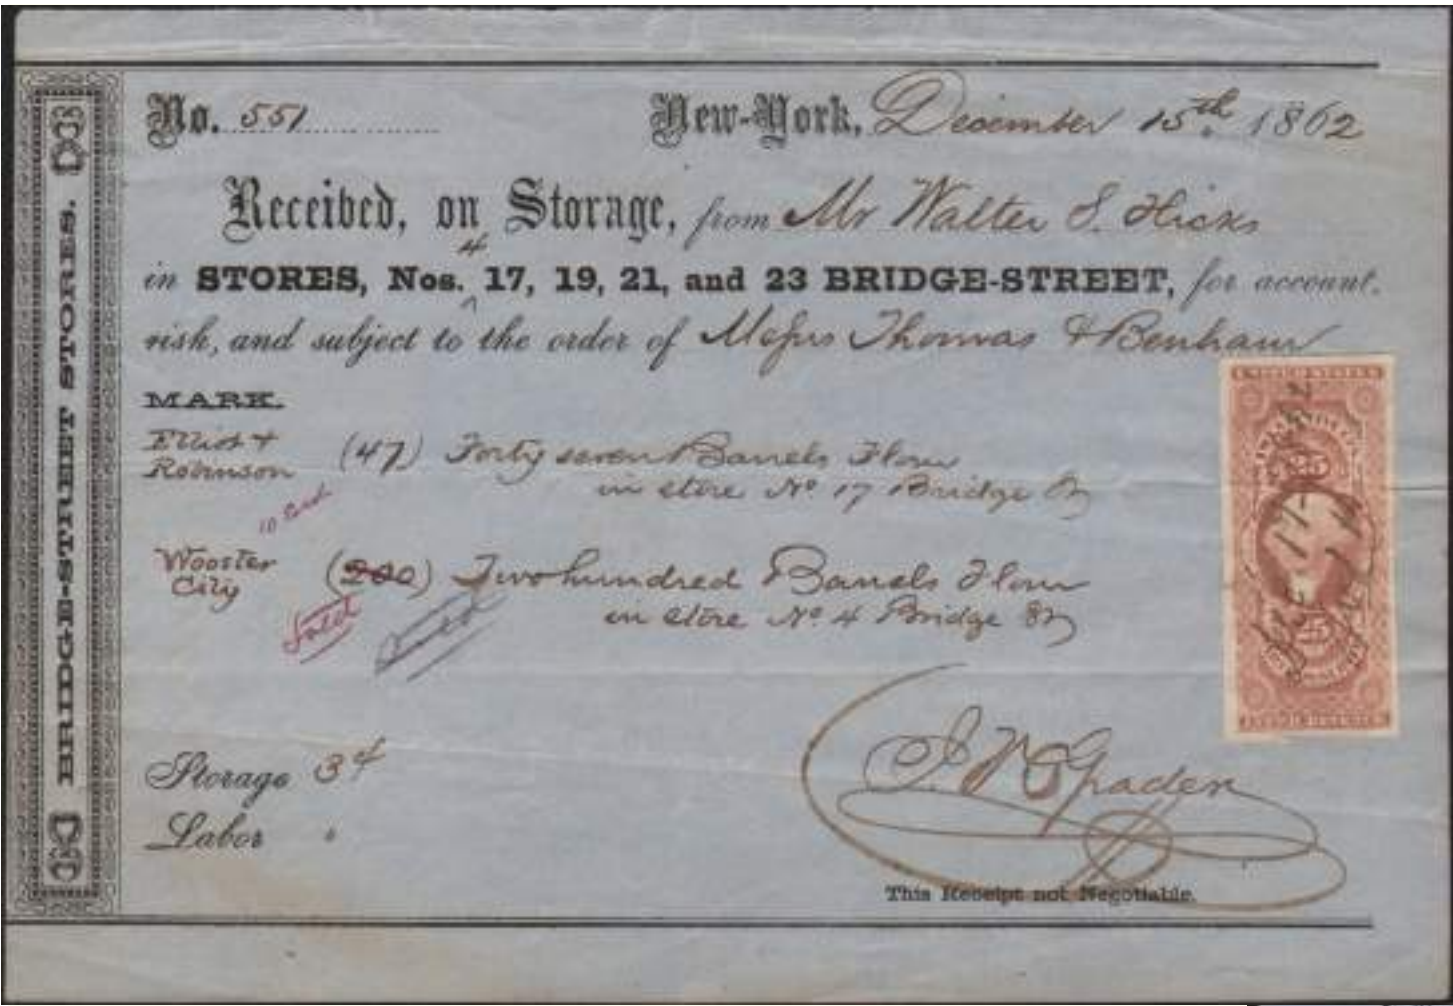 BRIDGE-STREET STORES.
No. 551 New-York, December 15th. 1862
Received, on Storage, from Mr Walter S. Hicks
4
in STORES, Nos. ^ 17, 19, 21, and 23 BRIDGE-STREET, for account.
risk, and subject to the order of Messrs Thomas & Benham
MARK.
Elliot &
Robinson (47) Forty seven Barrels Flour
in store No 17 Bridge St
10
Wooster
City (200) Two hundred Barrels Flour
in store No 4 Bridge St
Sold
Storage 3
Labor "
This Receipt not Negotiable.
UNITED STATES
25